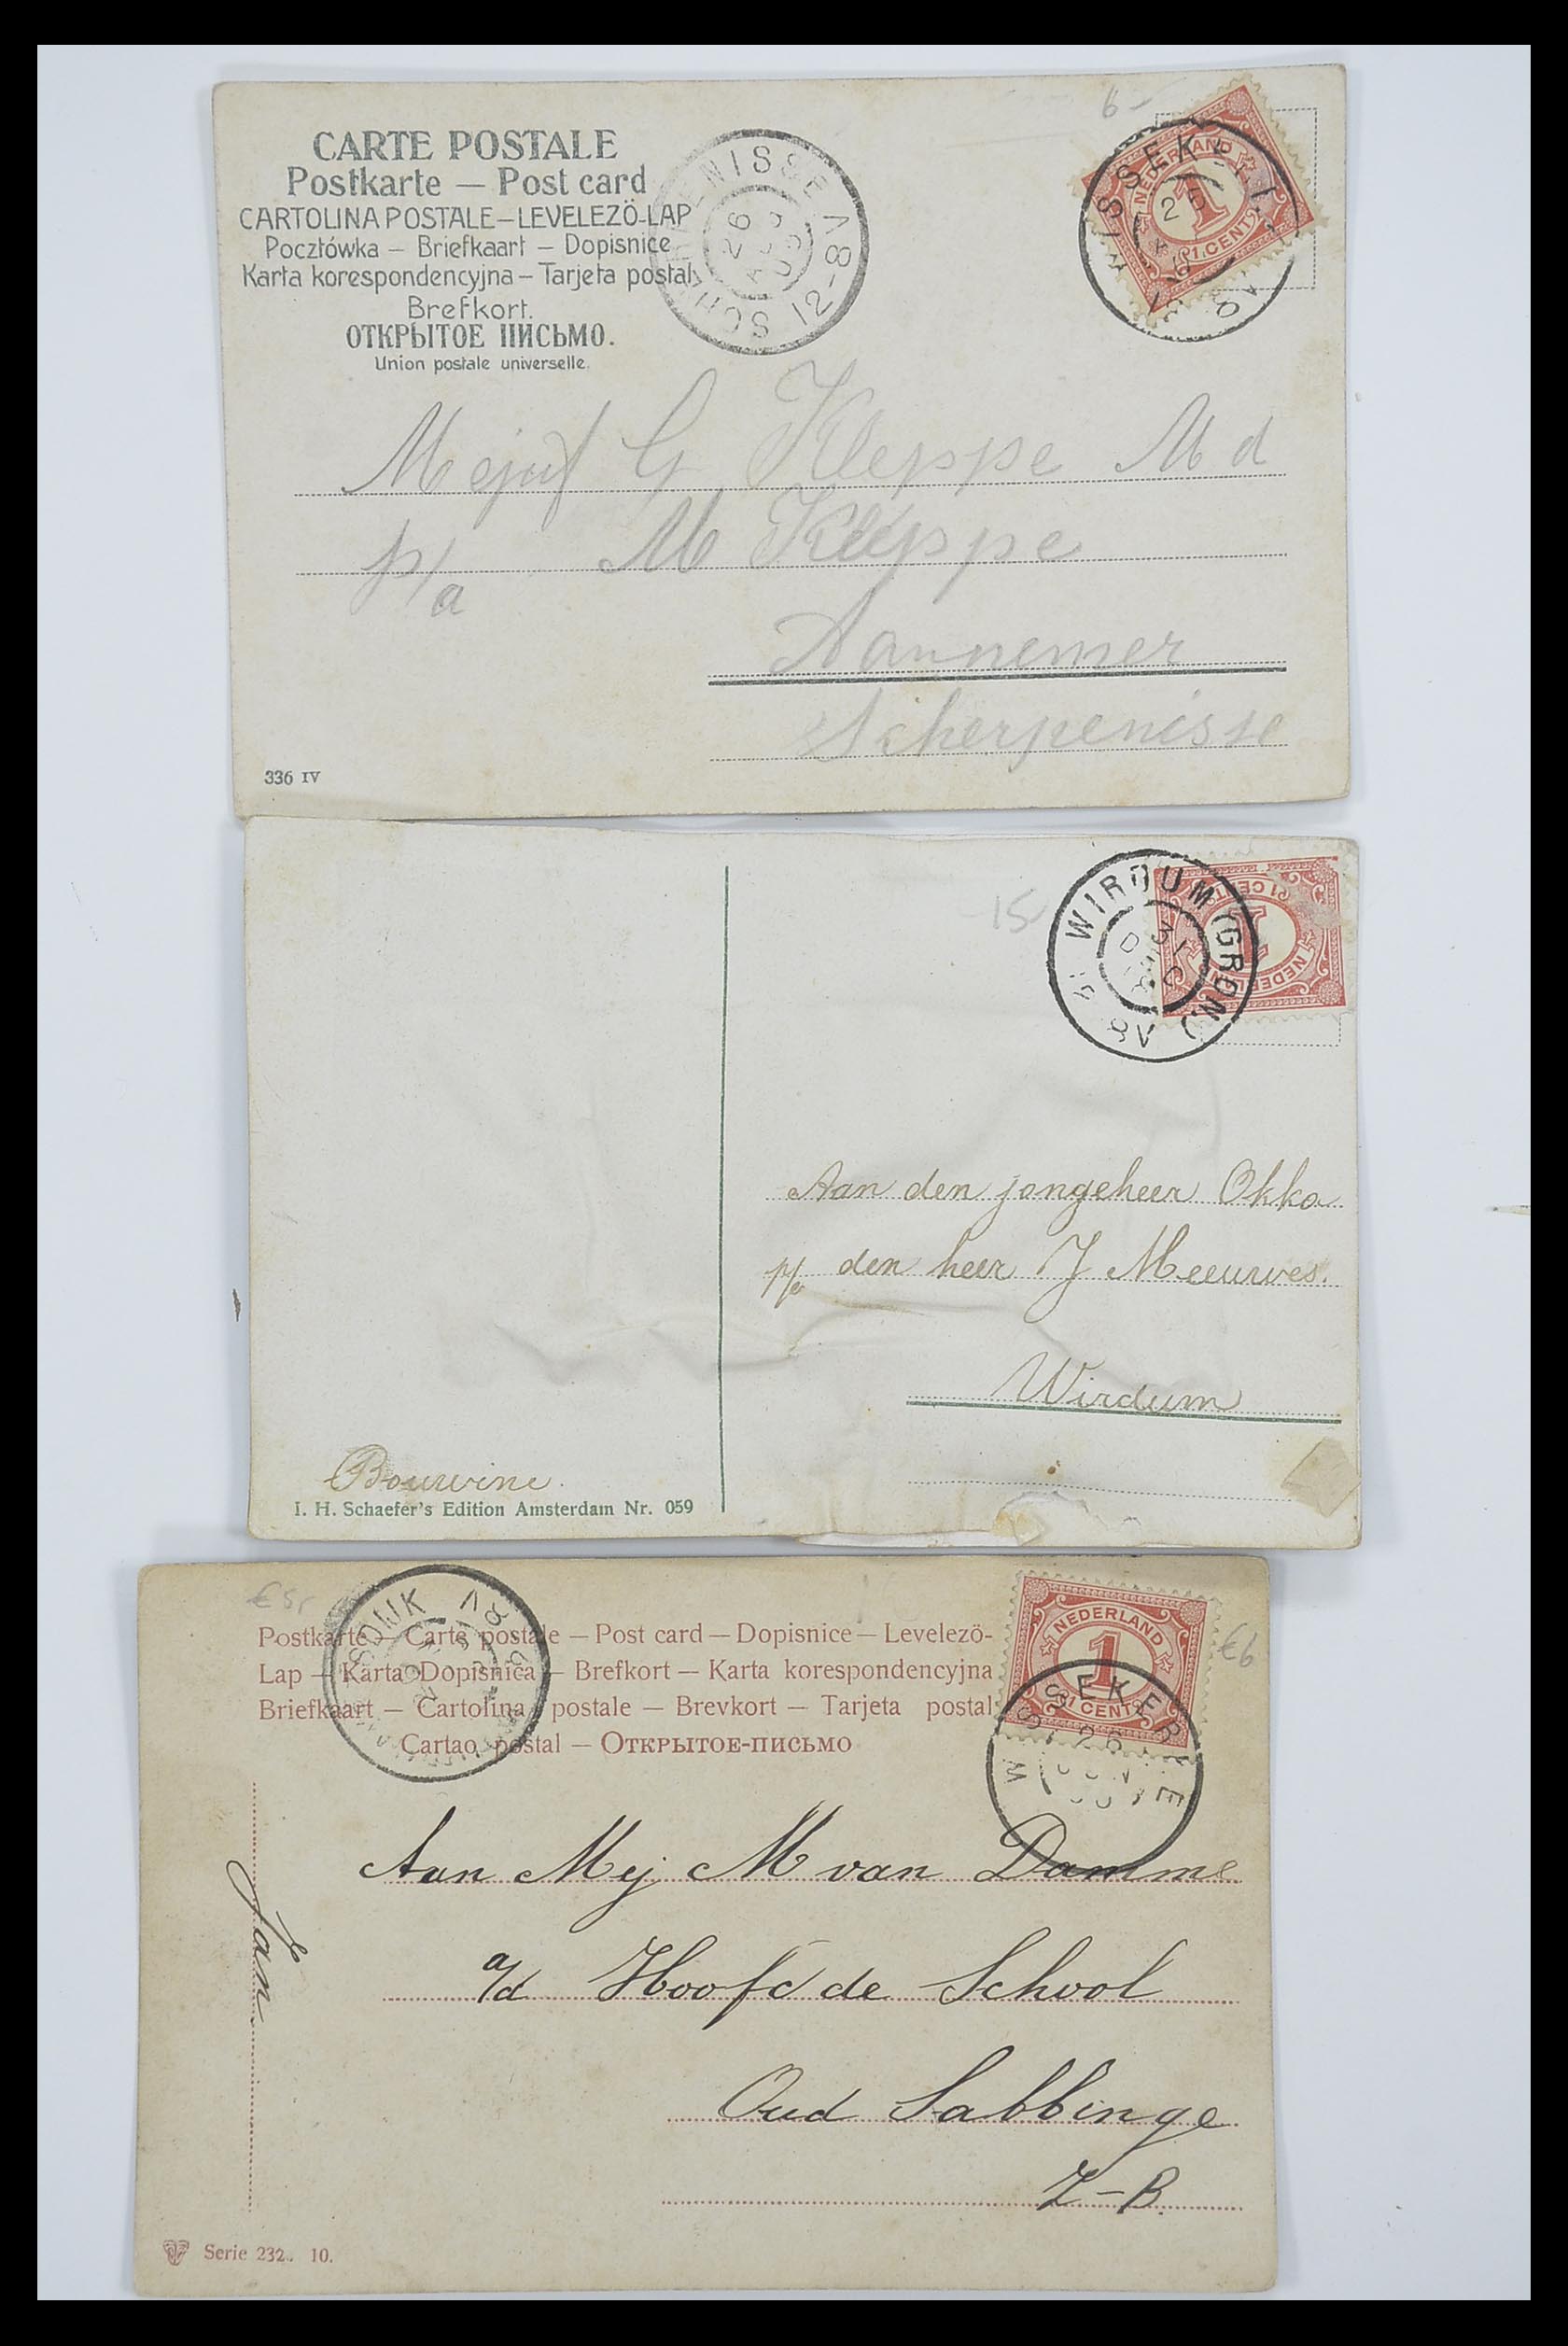 CARTE POSTALE
Postkarte — Post card
CARTOLINA POSTALE — LEVELEZÖ-LAP
Pocztówka — Briefkaart — Dopisnice
Karta korespondencyjna — Tarjeta postal
Brefkort.
ОТКРЫТОЕ ПИСЬМО.
Union postale universelle.
26
12-8V
6-
NEDERLAND
1
1 CENT
Mejuf G Kleppe Md
p/a M Kleppe
Aannemer
Scherpenisse
336 IV
15
WIRDUM (GRON.)
1 CENT
Aan den jongeheer Okko
p/a den heer J Meeuwes.
Wirdum
Bouwine.
I. H. Schaefer's Edition Amsterdam Nr. 059
€ 5,-
€6
Postkarte — Carte postale — Post card — Dopisnice — Levelezö-
Lap — Karta Dopisnica — Brefkort — Karta korespondencyjna
Briefkaart — Cartolina postale — Brevkort — Tarjeta postal
Cartao postal — Открытое-письмо
NEDERLAND
1
1 CENT
Aan Mej M van Damme
a/d Hoofd de School
Oud Sabbinge
Z-B.
Jan
Serie 232. 10.